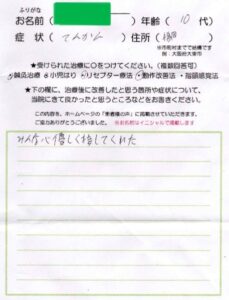 ふりがな
お名前（　　　　）年齢（10代）
症 状（てんかん）住所（　　）
※市町村までで結構です
例：大阪府大東市
★受けられた治療に○をつけてください。（複数回答可）
鍼灸治療 &小児はり リセプター療法 動作改善法・指頭感覚法
★下の欄に、治療後に改善したと思う箇所や症状について、
当院にきて良かったと思うところなどをお書きください。
この内容を、ホームページの『患者様の声』に掲載させていただきます。
ご協力ありがとうございました。 ※お名前はイニシャルで掲載します
みんな心優しく接してくれた